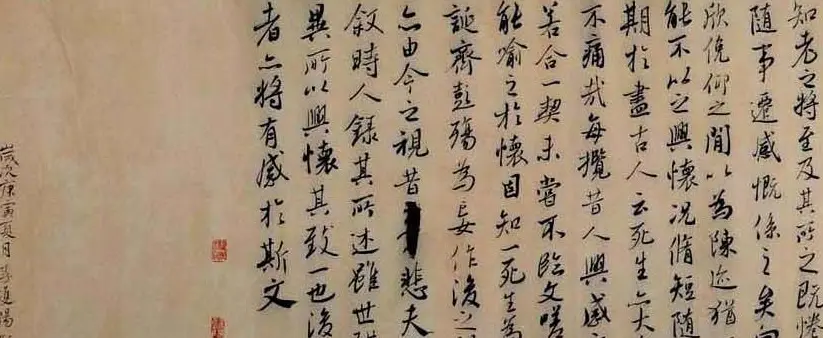 知老之將至及其所之既惓
隨事遷感慨係之矣向
欣俛仰之閒以為陳迹猶
能不以之興懷況脩短隨
期於盡古人云死生亦大
不痛哉每攬昔人興感
若合一契未嘗不臨文嗟
能喻之於懷固知一死生為
誕齊彭殤為妄作後之
亦由今之視昔悲夫
敘時人錄其所述雖世殊
異所以興懷其致一也後
者亦將有感於斯文
歲次庚寅夏月李